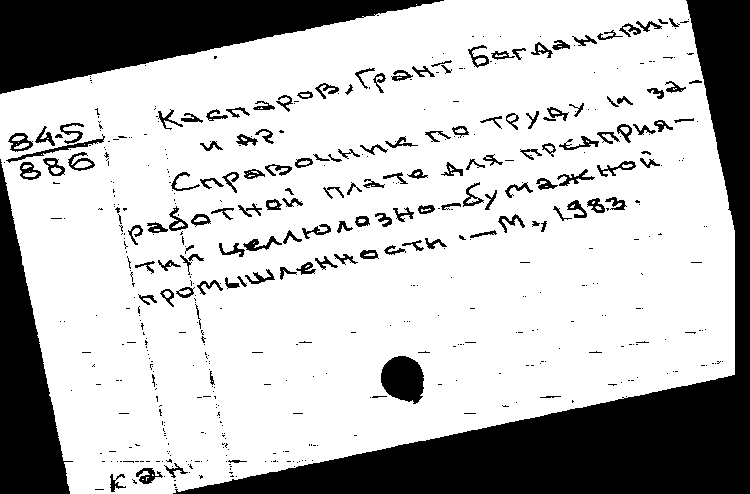 845
886
Каспаров, Грант Богданович
и др.
Справочник по труду и за-
работной плате для предприя-
тий целлюлозно-бумажной
промышленности. — М., 1983.
к.э.н.